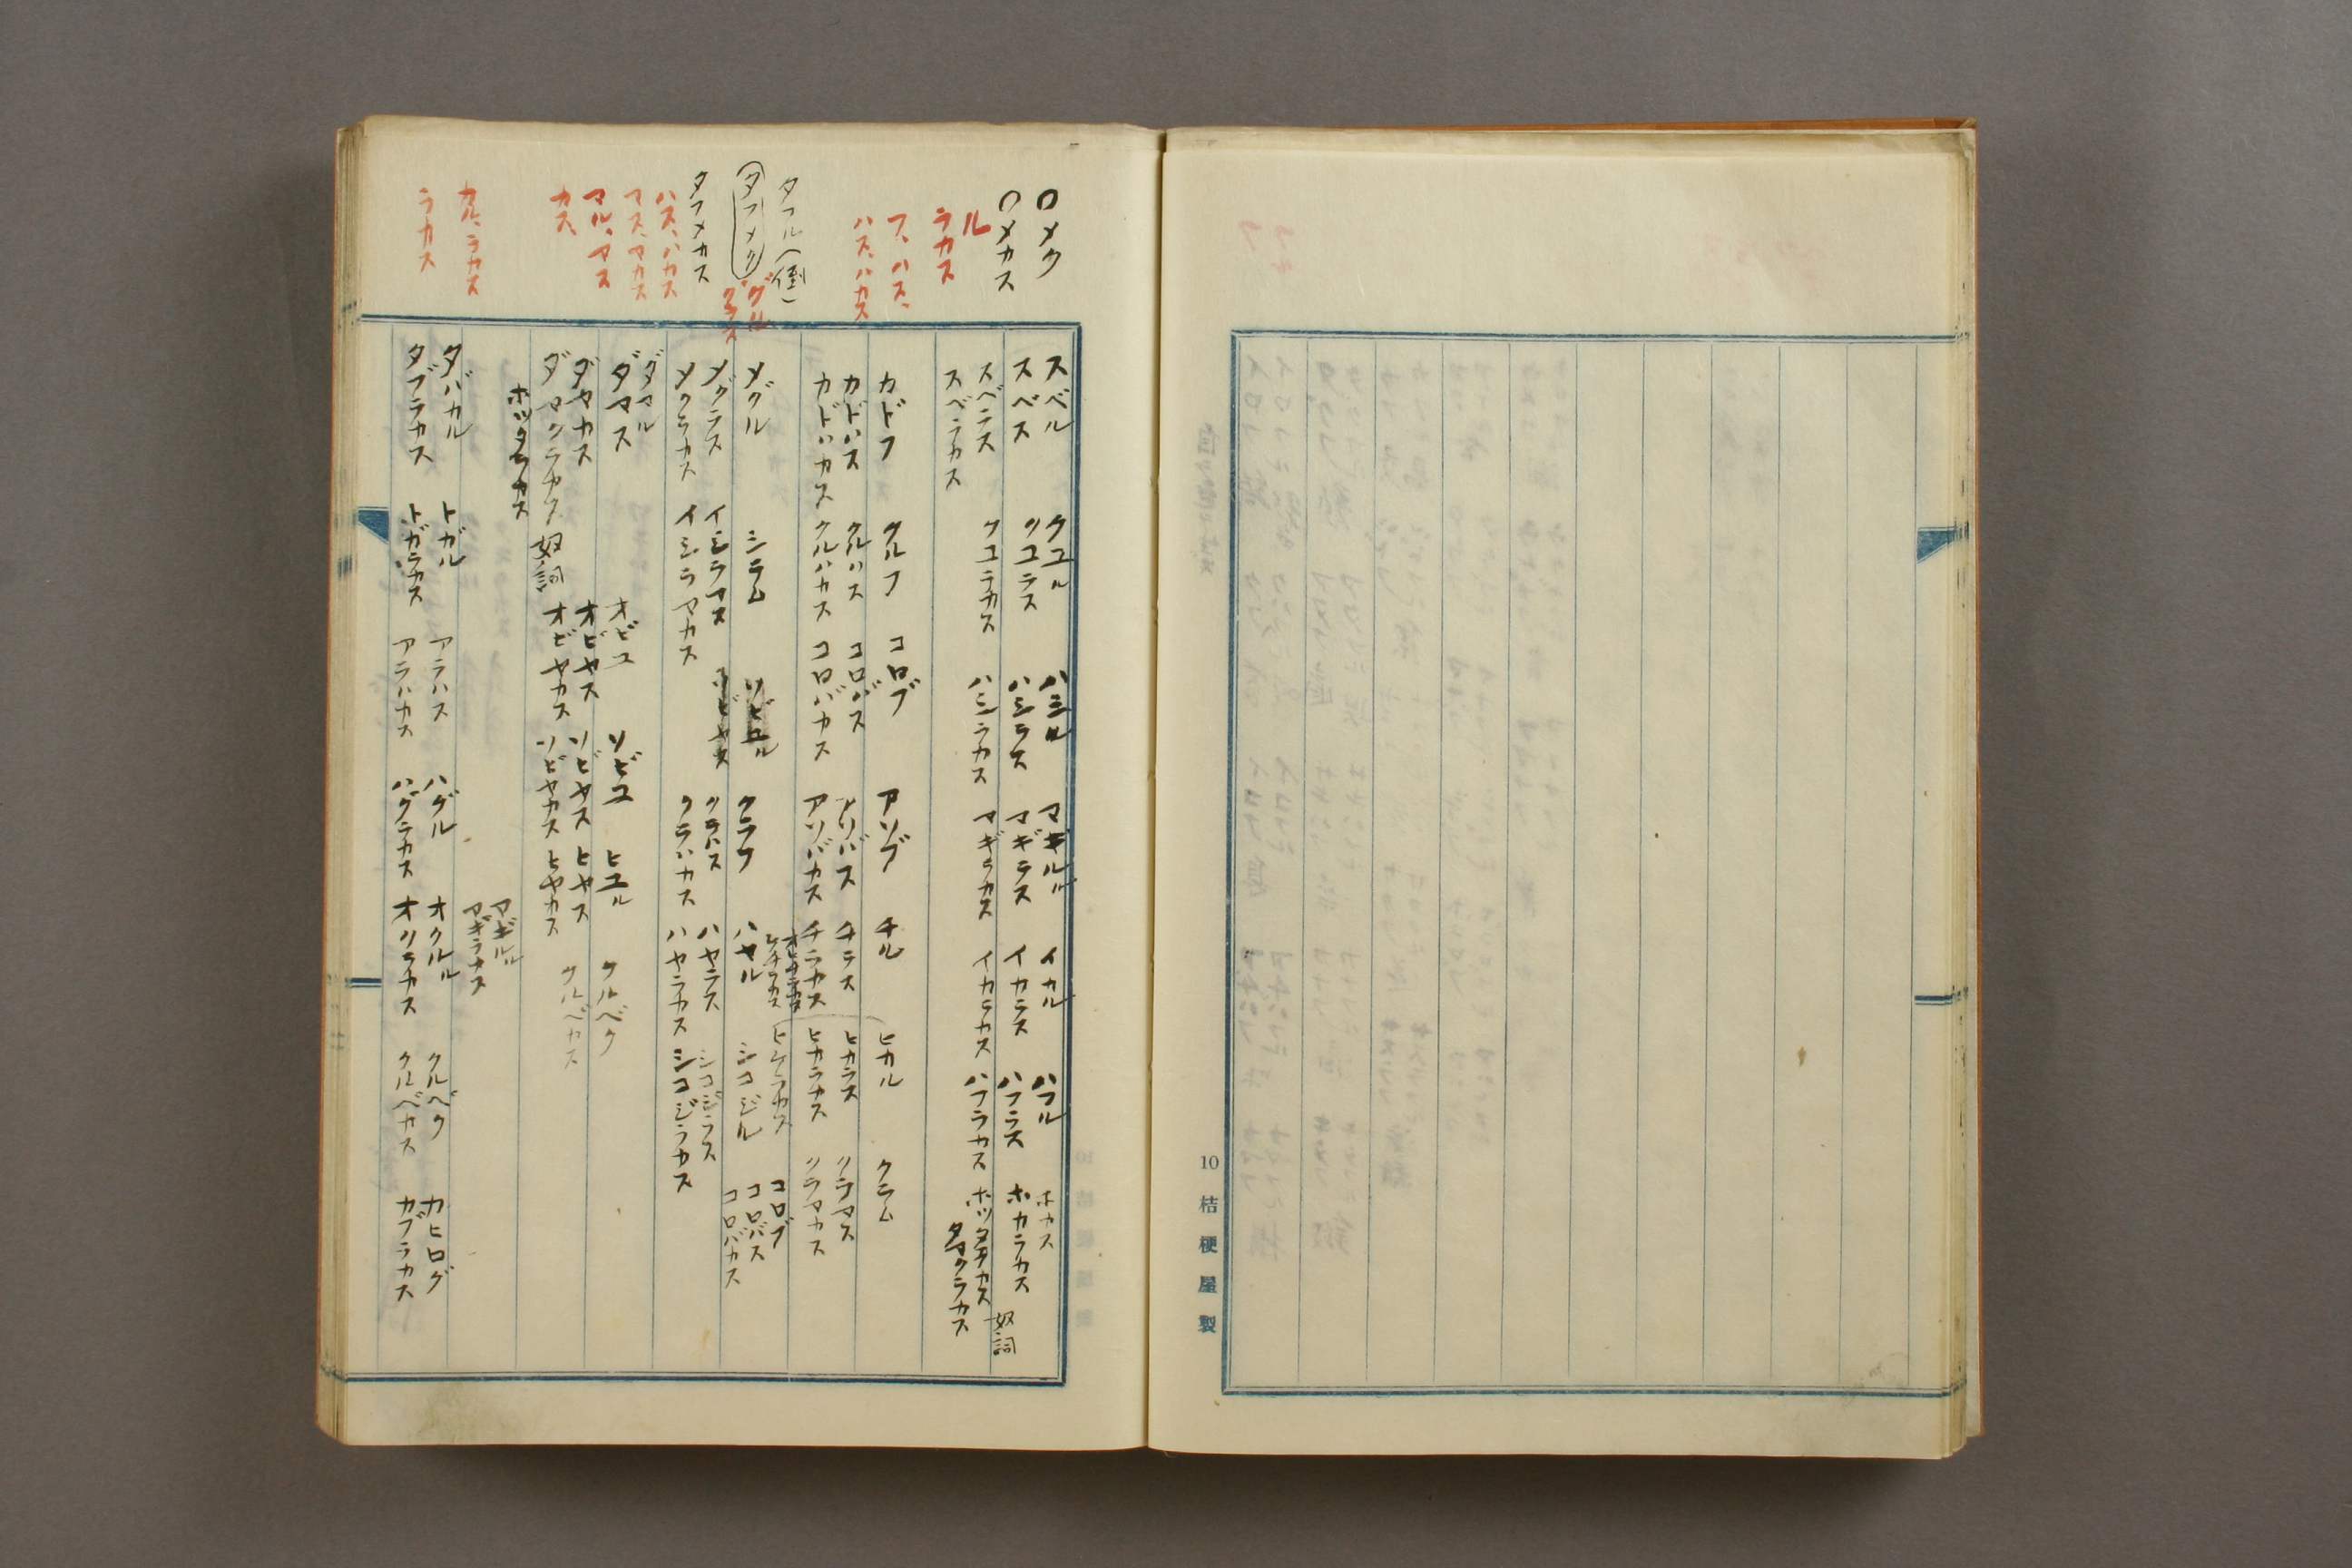 〇メク
〇メカス
ル
ラカス
フ、ハス、
ハス、ハカス
タフル(倒)
タフメク
グル
クラス
タフメカス
ハス、ハカス
マス、マカス
マル、マス
カス、
カル、ラカス
ラカス
スベル クユル ハシル マギル イカル ハフル ホカス
スベス クユラス ハシラス マギラス イカラス ハフラス ホカラカス 奴詞
スベラス クユラカス ハシラカス マギラカス イカラカス ハフラカス ホッタラカス
スベラカス タマクラカス
カドフ クルフ コロブ アソブ チル ヒカル クラム
カドハス クルハス コロバス アソバス チラス ヒカラス クラマス
カドハカス クルハカス コロバカス アソバカス チラカス ヒカラカス クラマカス
ヒケラカス
メグル シラム ソビユル クラフ ハヤル シコジル コロブ
メグラス イシラマス ソビヤス クラハス ハヤラス シコジラス コロバス
メグラカス イシラマカス クラハカス ハヤラカス シコジラカス コロバカス
ダマル
ダマス オビユ ソビユ ヒユル クルベク
ダヤカス オビヤス ソビヤス ヒヤス クルベカス
ダマクラカス 奴詞 オビヤカス ソビヤカス ヒヤカス
ホッタラカス
マギル
マギラカス
タバカル トガル アラハス ハグル オクル クルベク カヒログ
タブラカス トガラカス アラハカス ハグラカス オクラカス クルベカス カブラカス
10
桔梗屋製